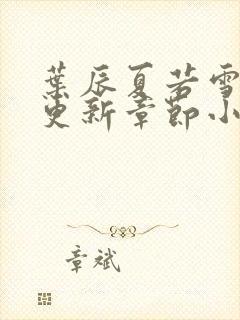 葉辰夏若雪
更新章節小
章斌